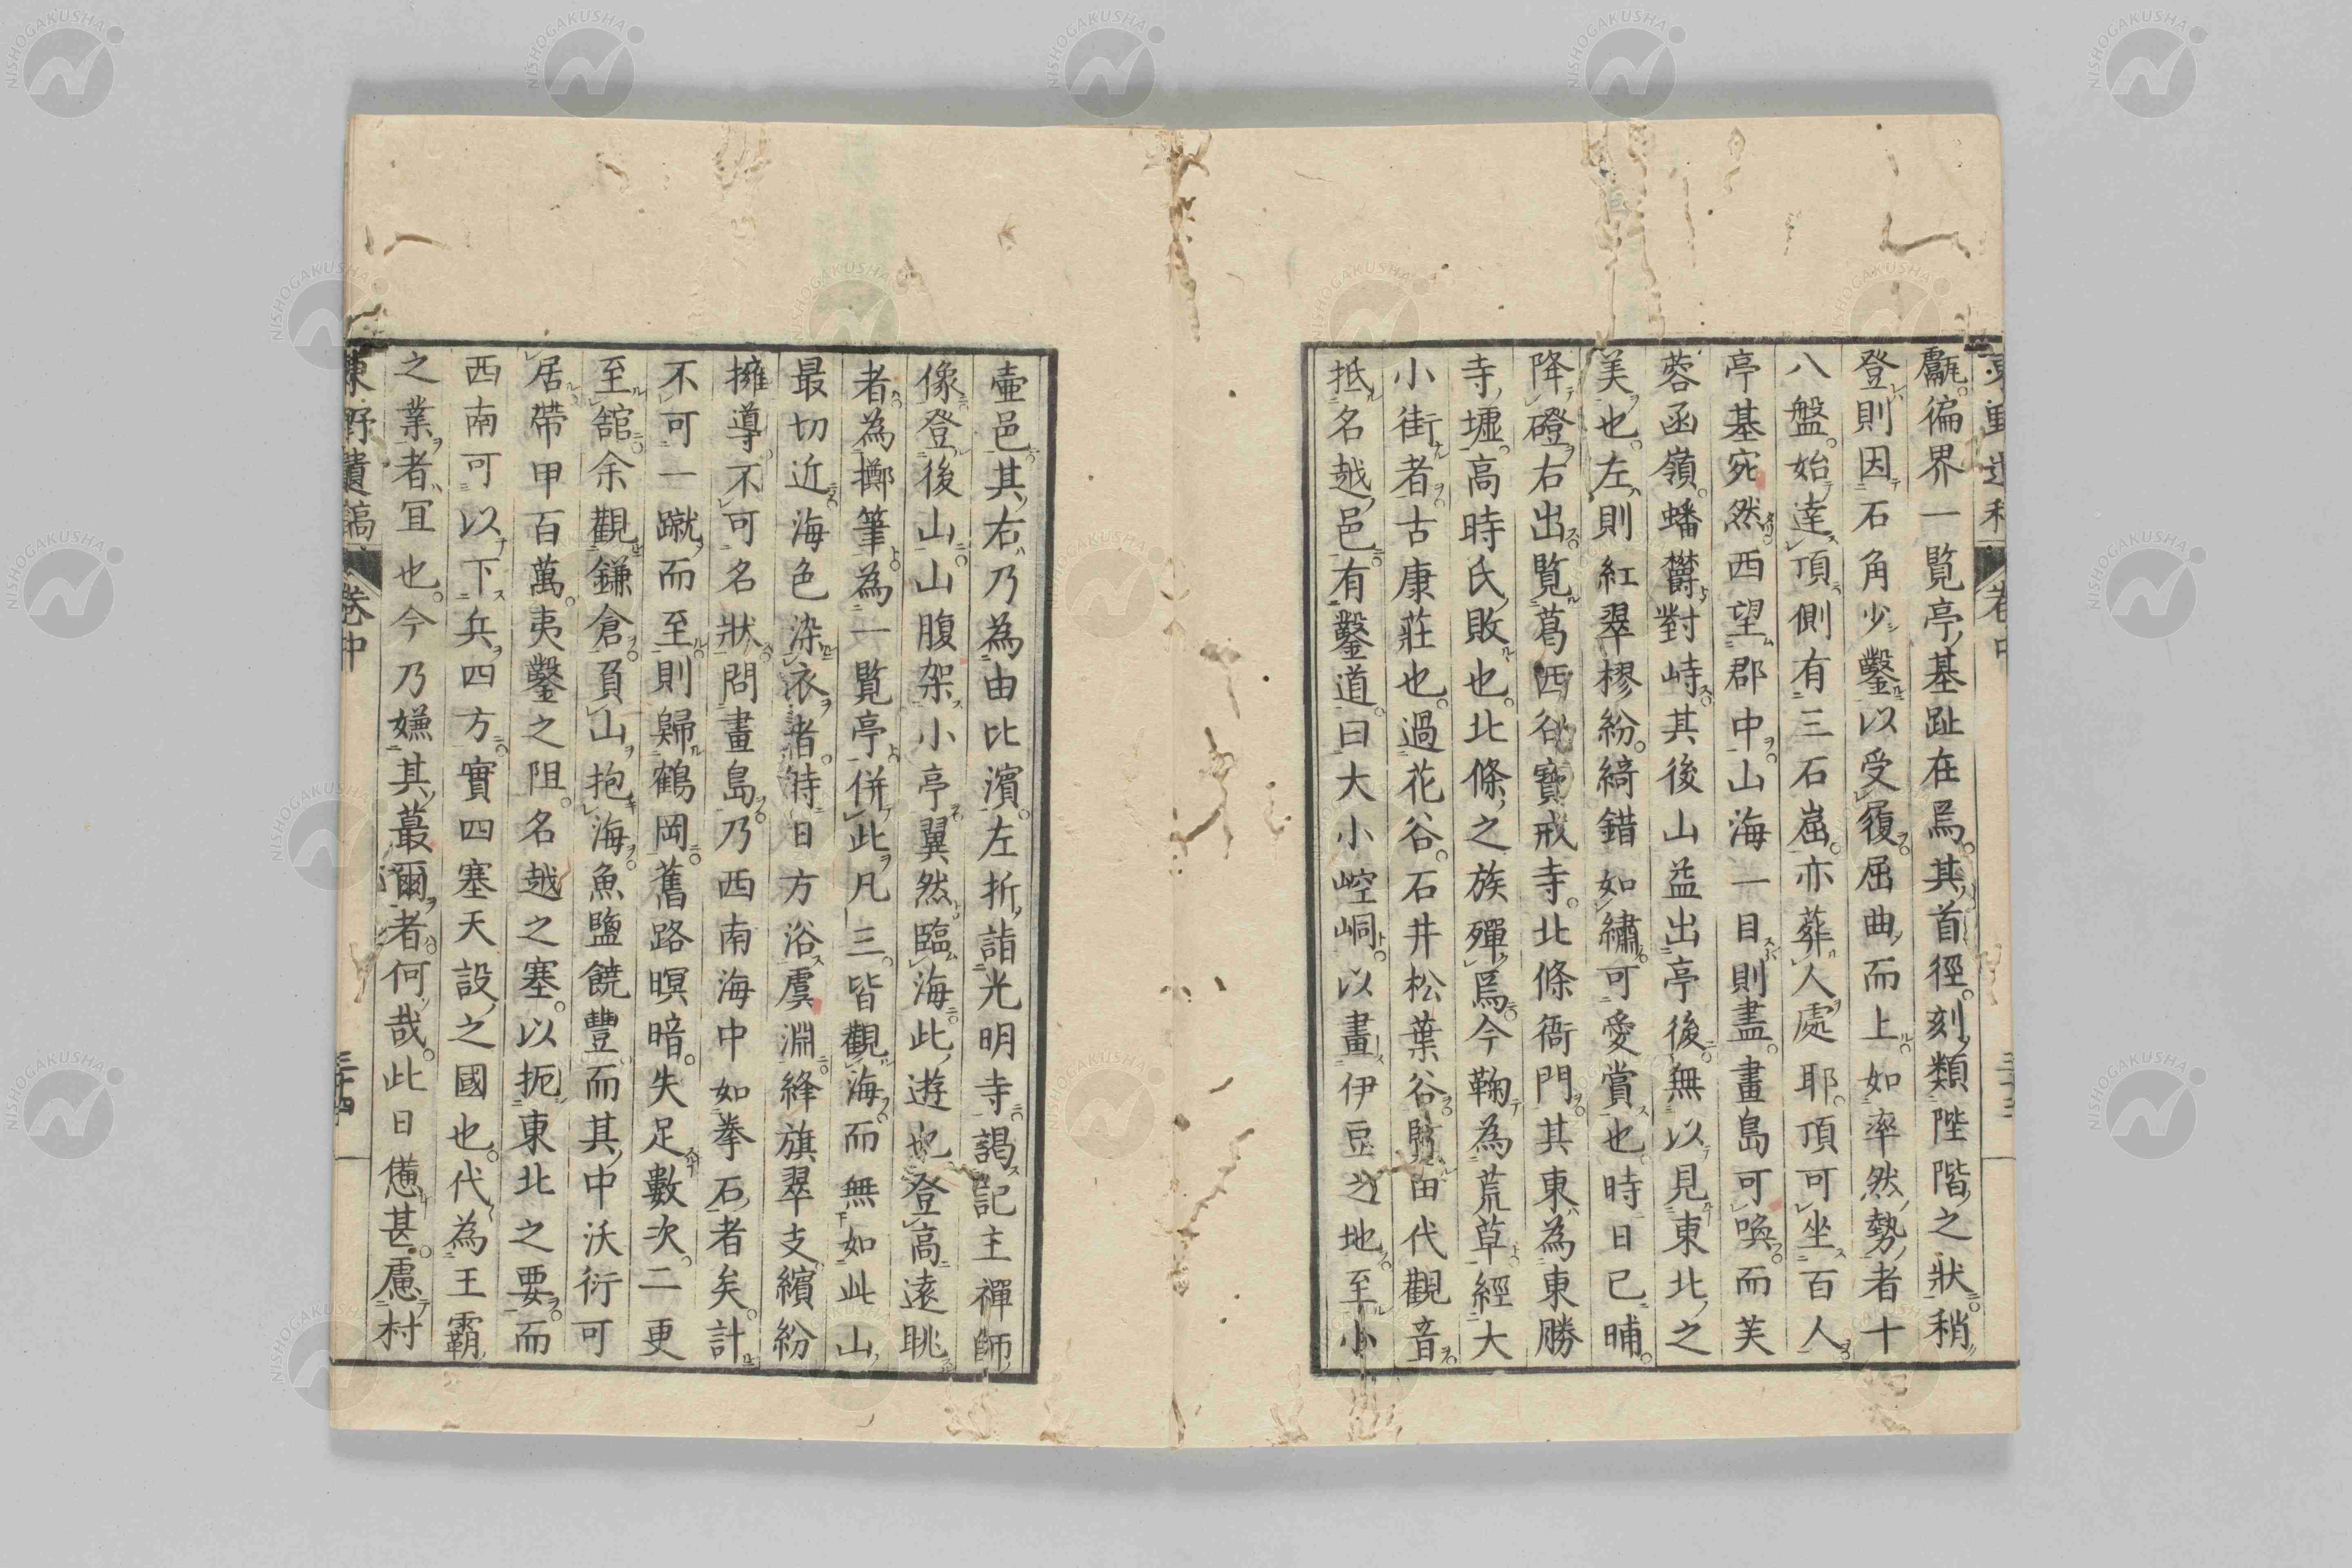 甗徧界一覧亭基趾在焉其首徑刻類陛階之狀稍
登則因石角少鑿以受履屈曲而上如率然勢者十
八盤始達頂側有三石崫亦葬人處耶頂可坐百人
亭基宛然西望郡中山海一目則盡畫島可喚而芙
蓉函嶺蟠欝對峙其後山益出亭後無以見東北之
美也左則紅翠樛紛綺錯如繡可愛賞也時日已晡
降磴右出覧葛西谷寶戒寺北條衙門其東為東勝
寺墟高時氏敗也北條之族殫焉今鞠為荒草經大
小街者古康莊也過花谷石井松葉谷田代觀音
抵名越邑有鑿道曰大小崆峒以畫伊豆之地至小
壷邑其右乃為由比濱左折詣光明寺謁記主禪師
像登後山山腹架小亭翼然臨海此遊也登高遠眺
者為擲筆為一覧亭併此凡三皆觀海而無如此山
最切近海色染衣者時日方浴虞淵絳旗翠支繽紛
擁導不可名狀問畫島乃西南海中如拳石者矣計
不可一蹴而至則歸鶴岡舊路暝暗失足數次二更
至舘余觀鎌倉負山抱海魚鹽饒豐而其中沃衍可
居帶甲百萬夷鑿之阻名越之塞以扼東北之要而
西南可以下兵四方實四塞天設之國也代為王霸
之業者冝也今乃嫌其蕞爾者何哉此日憊甚慮村
東野遺稿 卷中 三十四
NISHOGAKUSHA